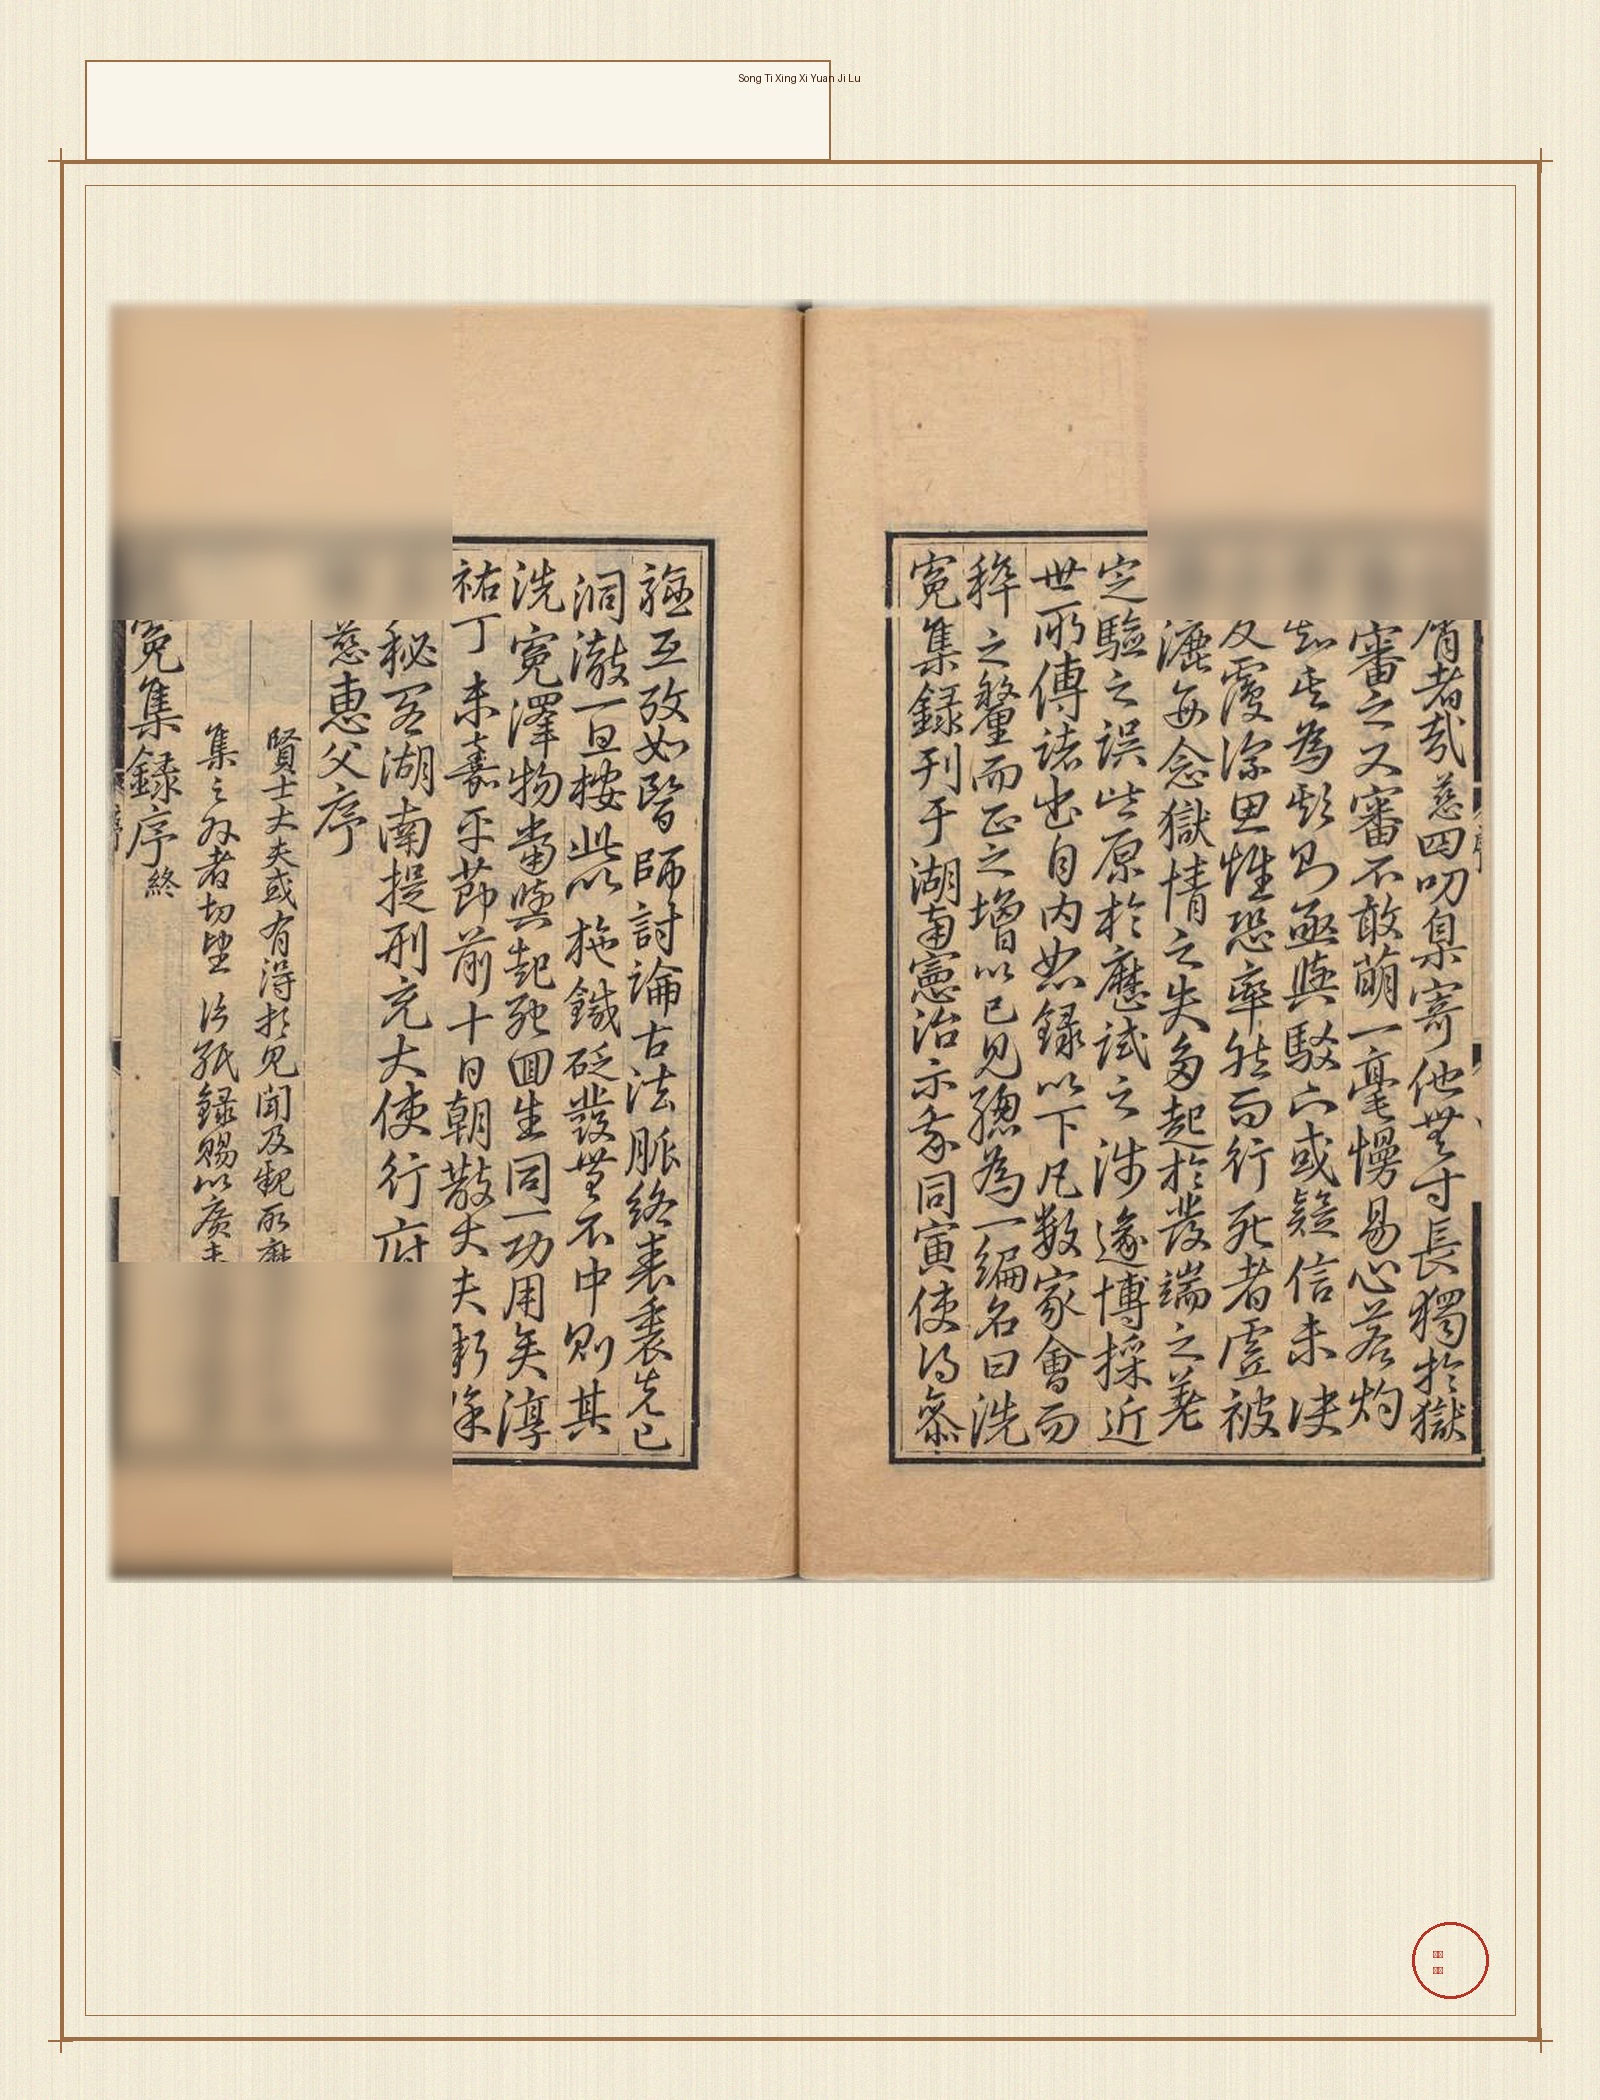 屑者哉慈四叨臬寄他無寸長獨於獄
審之又審不敢萌一毫慢易心若灼
知其為欺則亟與駁下或疑信未決
反覆深思惟恐率然而行死者虛被
漉每念獄情之失多起於發端之差
定驗之誤皆原於歷試之淺遂博採近
世所傳諸書自内恕録以下凡數家會而
稡之釐而正之增以已見總為一編名曰洗
寃集録刊于湖南憲治示我同寅使得參
驗互攷如醫師討論古法脈絡表裏先已
洞澈一旦按此以施鍼砭發無不中則其
洗寃澤物當與起死回生同一功用矣淳
祐丁未嘉平節前十日朝散大夫新除
秘閣湖南提刑充大使行府
慈惠父序
賢士大夫或有得於見聞及親所歷
集之外者切望片紙録賜以廣未
寃集録序終
Song Ti Xing Xi Yuan Ji Lu